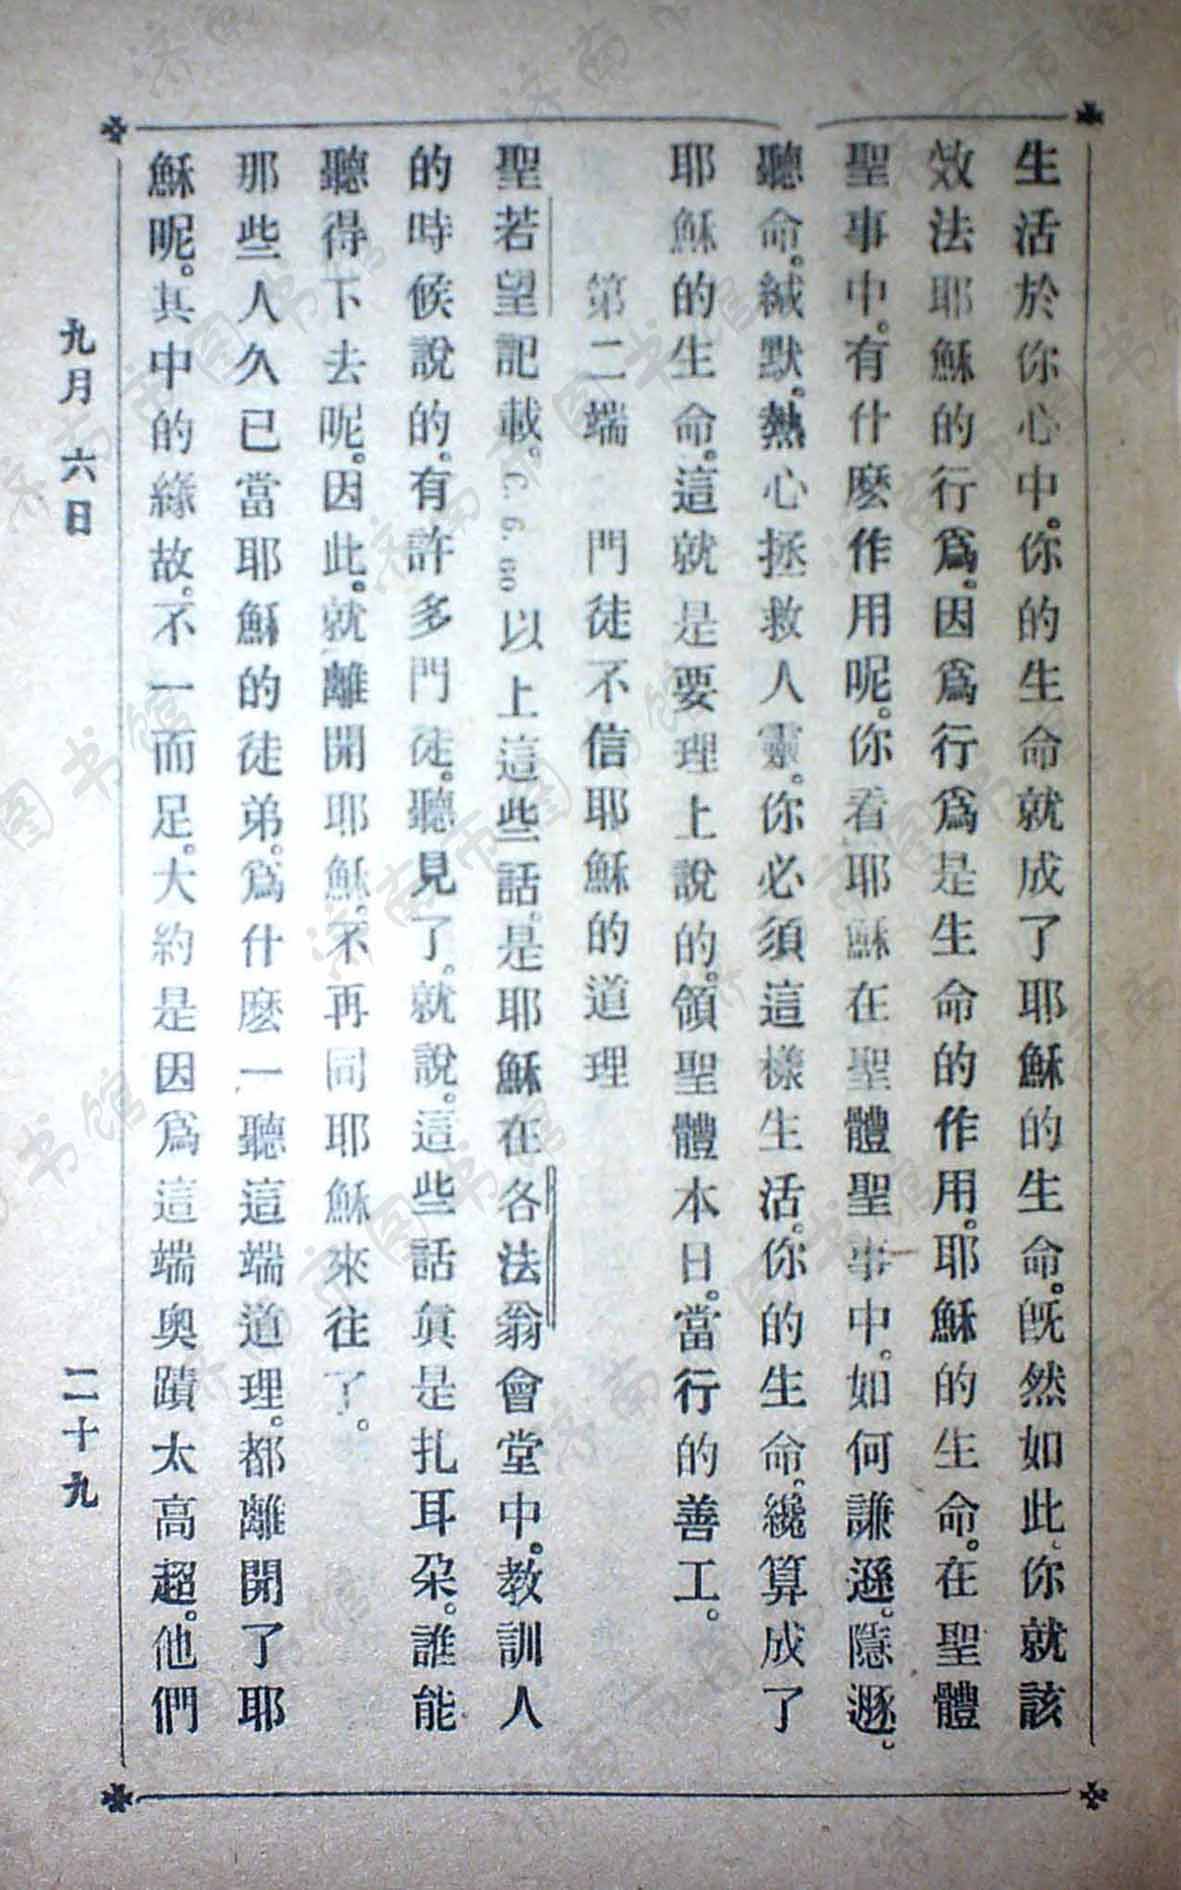 生活於你心中。你的生命就成了耶穌的生命。旣然如此、你就該
效法耶穌的行爲。因爲行爲是生命的作用。耶穌的生命。在聖體
聖事中。有什麽作用呢。你看耶穌在聖體聖事中。如何謙遜。隱遯。
聽命。緘默。熱心拯救人靈。你必須這樣生活。你的生命。纔算成了
耶穌的生命。這就是要理上說的。領聖體本日。當行的善工。
第二端　門徒不信耶穌的道理
聖若望記載。C. 6. 60. 以上這些話。是耶穌在各法翁會堂中。教訓人
的時候說的。有許多門徒。聽見了。就說。這些話眞是扎耳朶。誰能
聽得下去呢。因此。就離開耶穌。不再同耶穌來往了。
那些人久已當耶穌的徒弟。爲什麽一聽這端道理。都離開了耶
穌呢。其中的緣故。不一而足。大約是因爲這端奧蹟太高超。他們
九月六日　二十九
济南市图书馆